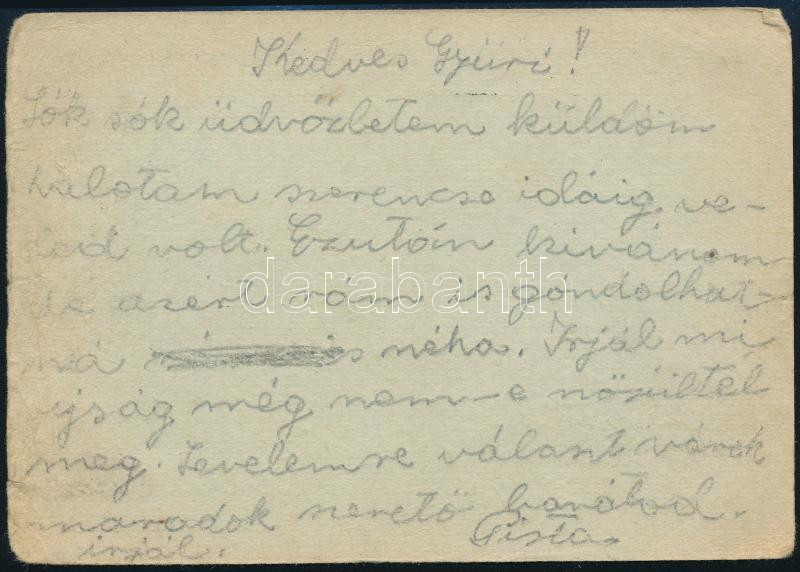 Kedves Gyuri!
Sők sók üdvőzletem küldöm
szerencse idáig ve-
led volt. Ezután kivánom
de azért rám is góndolhat-
ná is néha. Irjál mi
ujság még nem-e nősültél
meg. Levelemre választ várok
maradok szerető barátod.
Pista.
irjál.
darabanth